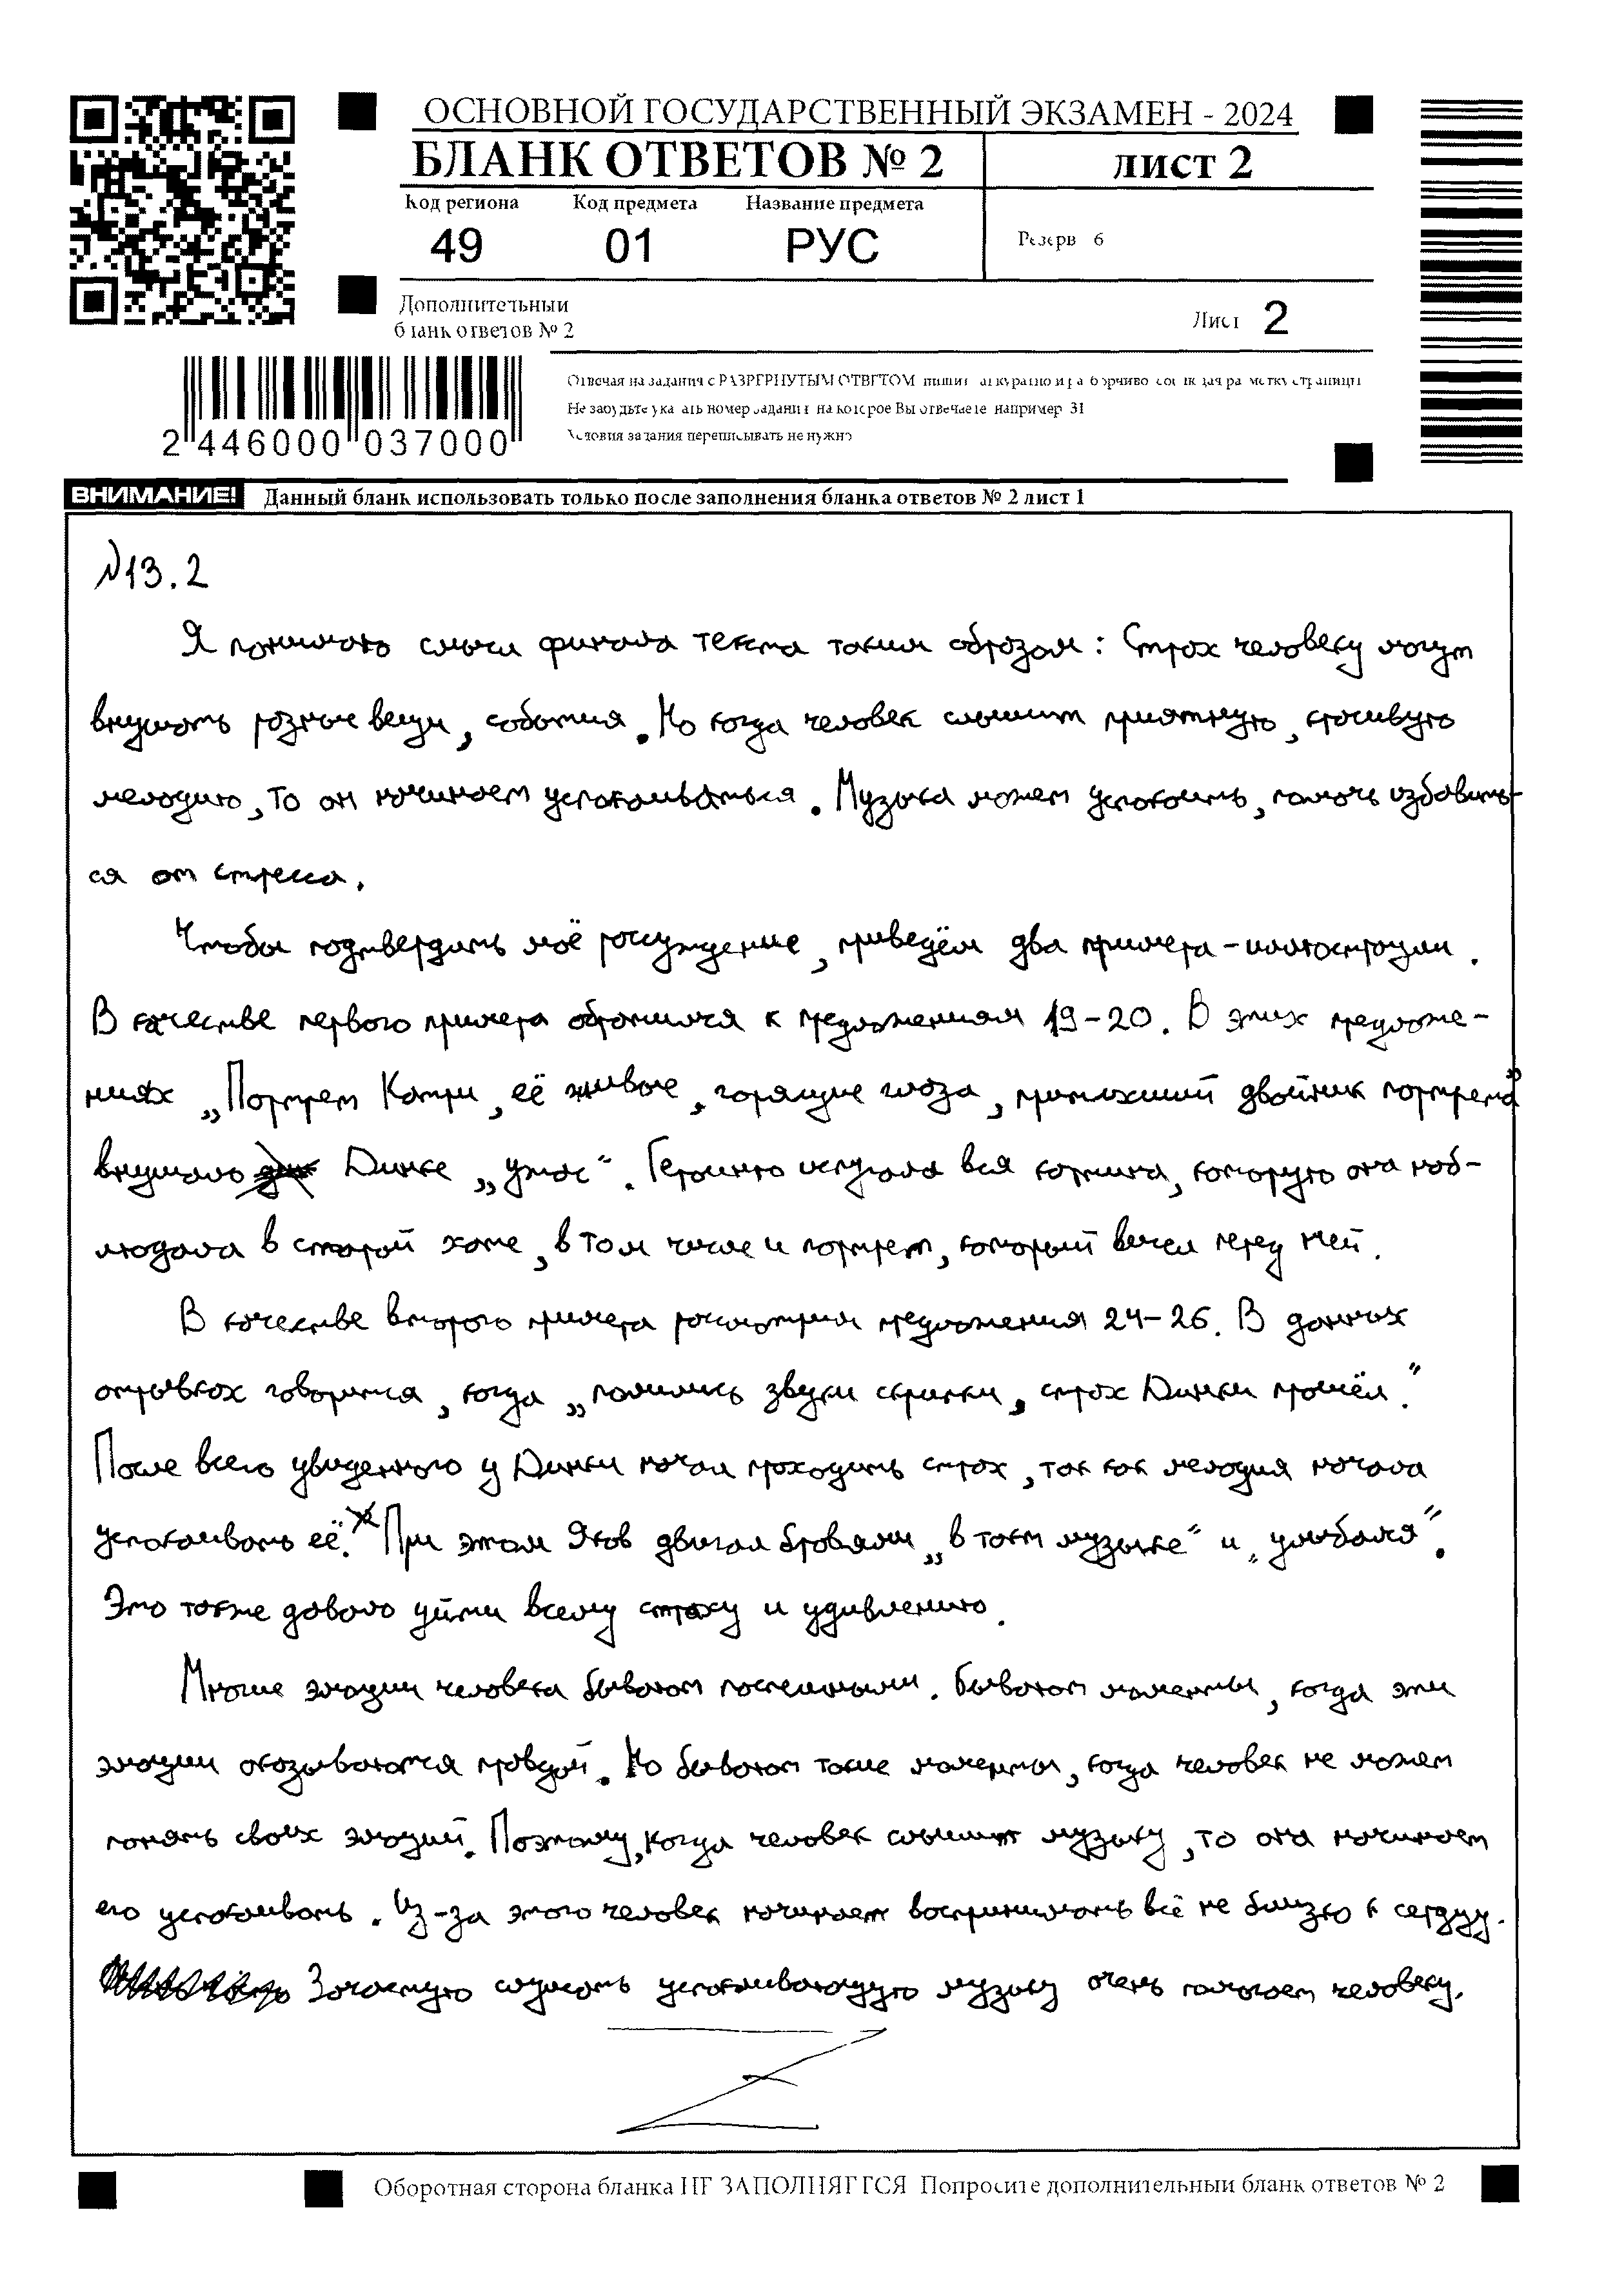 ОСНОВНОЙ ГОСУДАРСТВЕННЫЙ ЭКЗАМЕН - 2024
БЛАНК ОТВЕТОВ № 2 лист 2
Код региона Код предмета Название предмета
49 01 РУС Резерв 6
Дополнительный
бланк ответов № 2 Лист 2
Отвечая на задания с РАЗВЕРНУТЫМ ОТВЕТОМ пишите аккуратно и разборчиво соблюдая разметку страницы
Не забудьте указать номер задания на которое Вы отвечаете например 31
Условия задания переписывать не нужно
2 446000 037000
ВНИМАНИЕ! Данный бланк использовать только после заполнения бланка ответов № 2 лист 1
№13.2
Я понимаю смысл финала текста таким образом: Страх человеку могут
внушать разные вещи, события. Но когда человек слышит приятную, красивую
мелодию, то он начинает успокаиваться. Музыка может успокоить, помочь избавить-
ся от стресса.
Чтобы подтвердить моё рассуждение, приведём два примера-иллюстрации.
В качестве первого примера обратимся к предложениям 19-20. В этих предложе-
ниях „Портрет Катри, её живые, горящие глаза, притихший двойник портрета"
внушало Динке „ужас". Героиню испугала вся картина, которую она наб-
людала в старой хате, в том числе и портрет, который висел перед ней.
В качестве второго примера рассмотрим предложения 24-26. В данных
отрывках говорится, когда „полились звуки скрипки, страх Динки прошёл."
После всего увиденного у Динки начал проходить страх, так как мелодия начала
успокаивать её. При этом Яков двигал бровями „в такт музыке" и „улыбался".
Это также давало уйти всему страху и удивлению.
Многие эмоции человека бывают поспешными. Бывают моменты, когда эти
эмоции оказываются правдой. Но бывают такие моменты, когда человек не может
понять своих эмоций. Поэтому, когда человек слышит музыку, то она начинает
его успокаивать. Из-за этого человек начинает воспринимать всё не близко к сердцу.
Зачастую слушать успокаивающую музыку очень помогает человеку.
Z
Оборотная сторона бланка НЕ ЗАПОЛНЯЕТСЯ Попросите дополнительный бланк ответов № 2